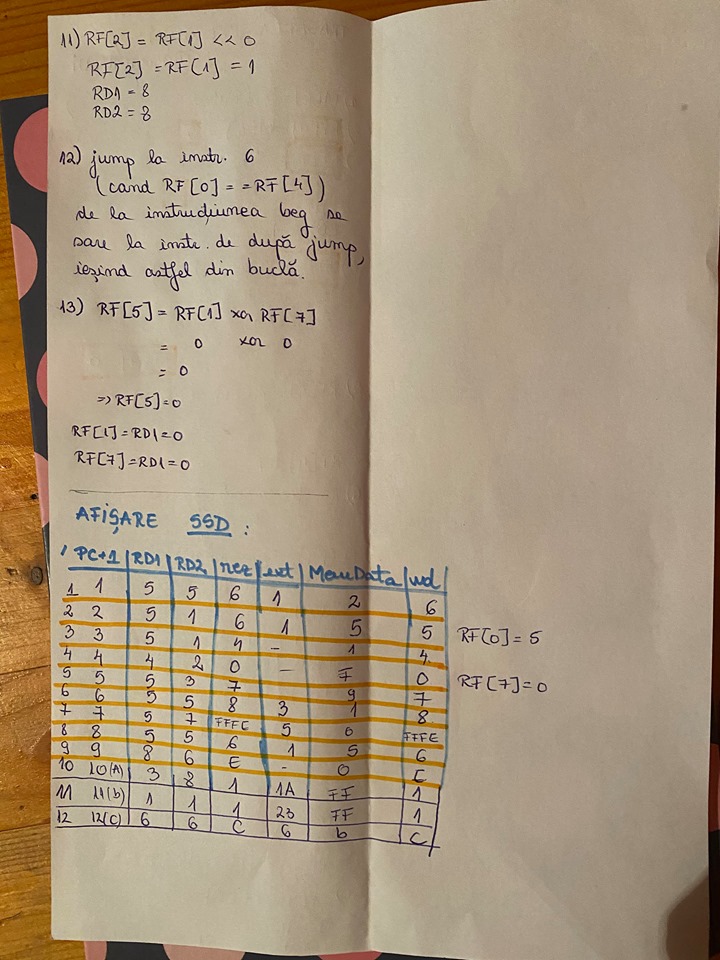 11) RF[2] = RF[1] << 0
RF[2] = RF[1] = 1
RD1 = 8
RD2 = 8
12) jump la instr. 6
(cand RF[0] = = RF[4])
de la instrucțiunea beg se
sare la instr. de după jump,
ieșind astfel din buclă.
13) RF[5] = RF[1] xor RF[7]
= 0 xor 0
= 0
=> RF[5] = 0
RF[1] = RD1 = 0
RF[7] = RD1 = 0
AFIȘARE SSD :
PC+1 RD1 RD2 rez ext MemData wd
1 1 5 5 6 1 2 6
2 2 5 1 6 1 5 5
3 3 5 1 4 - 1 4
4 4 4 2 0 - F 0
5 5 5 3 7 9 7
6 6 5 5 8 3 1 8
7 7 5 7 FFFE 5 0 FFFE
8 8 5 5 6 1 5 6
9 9 8 6 E - 0 C
10 10(A) 3 8 1 1A FF 1
11 11(b) 1 1 1 23 FF 1
12 12(C) 6 6 C 6 b C
RF[0] = 5
RF[7] = 0